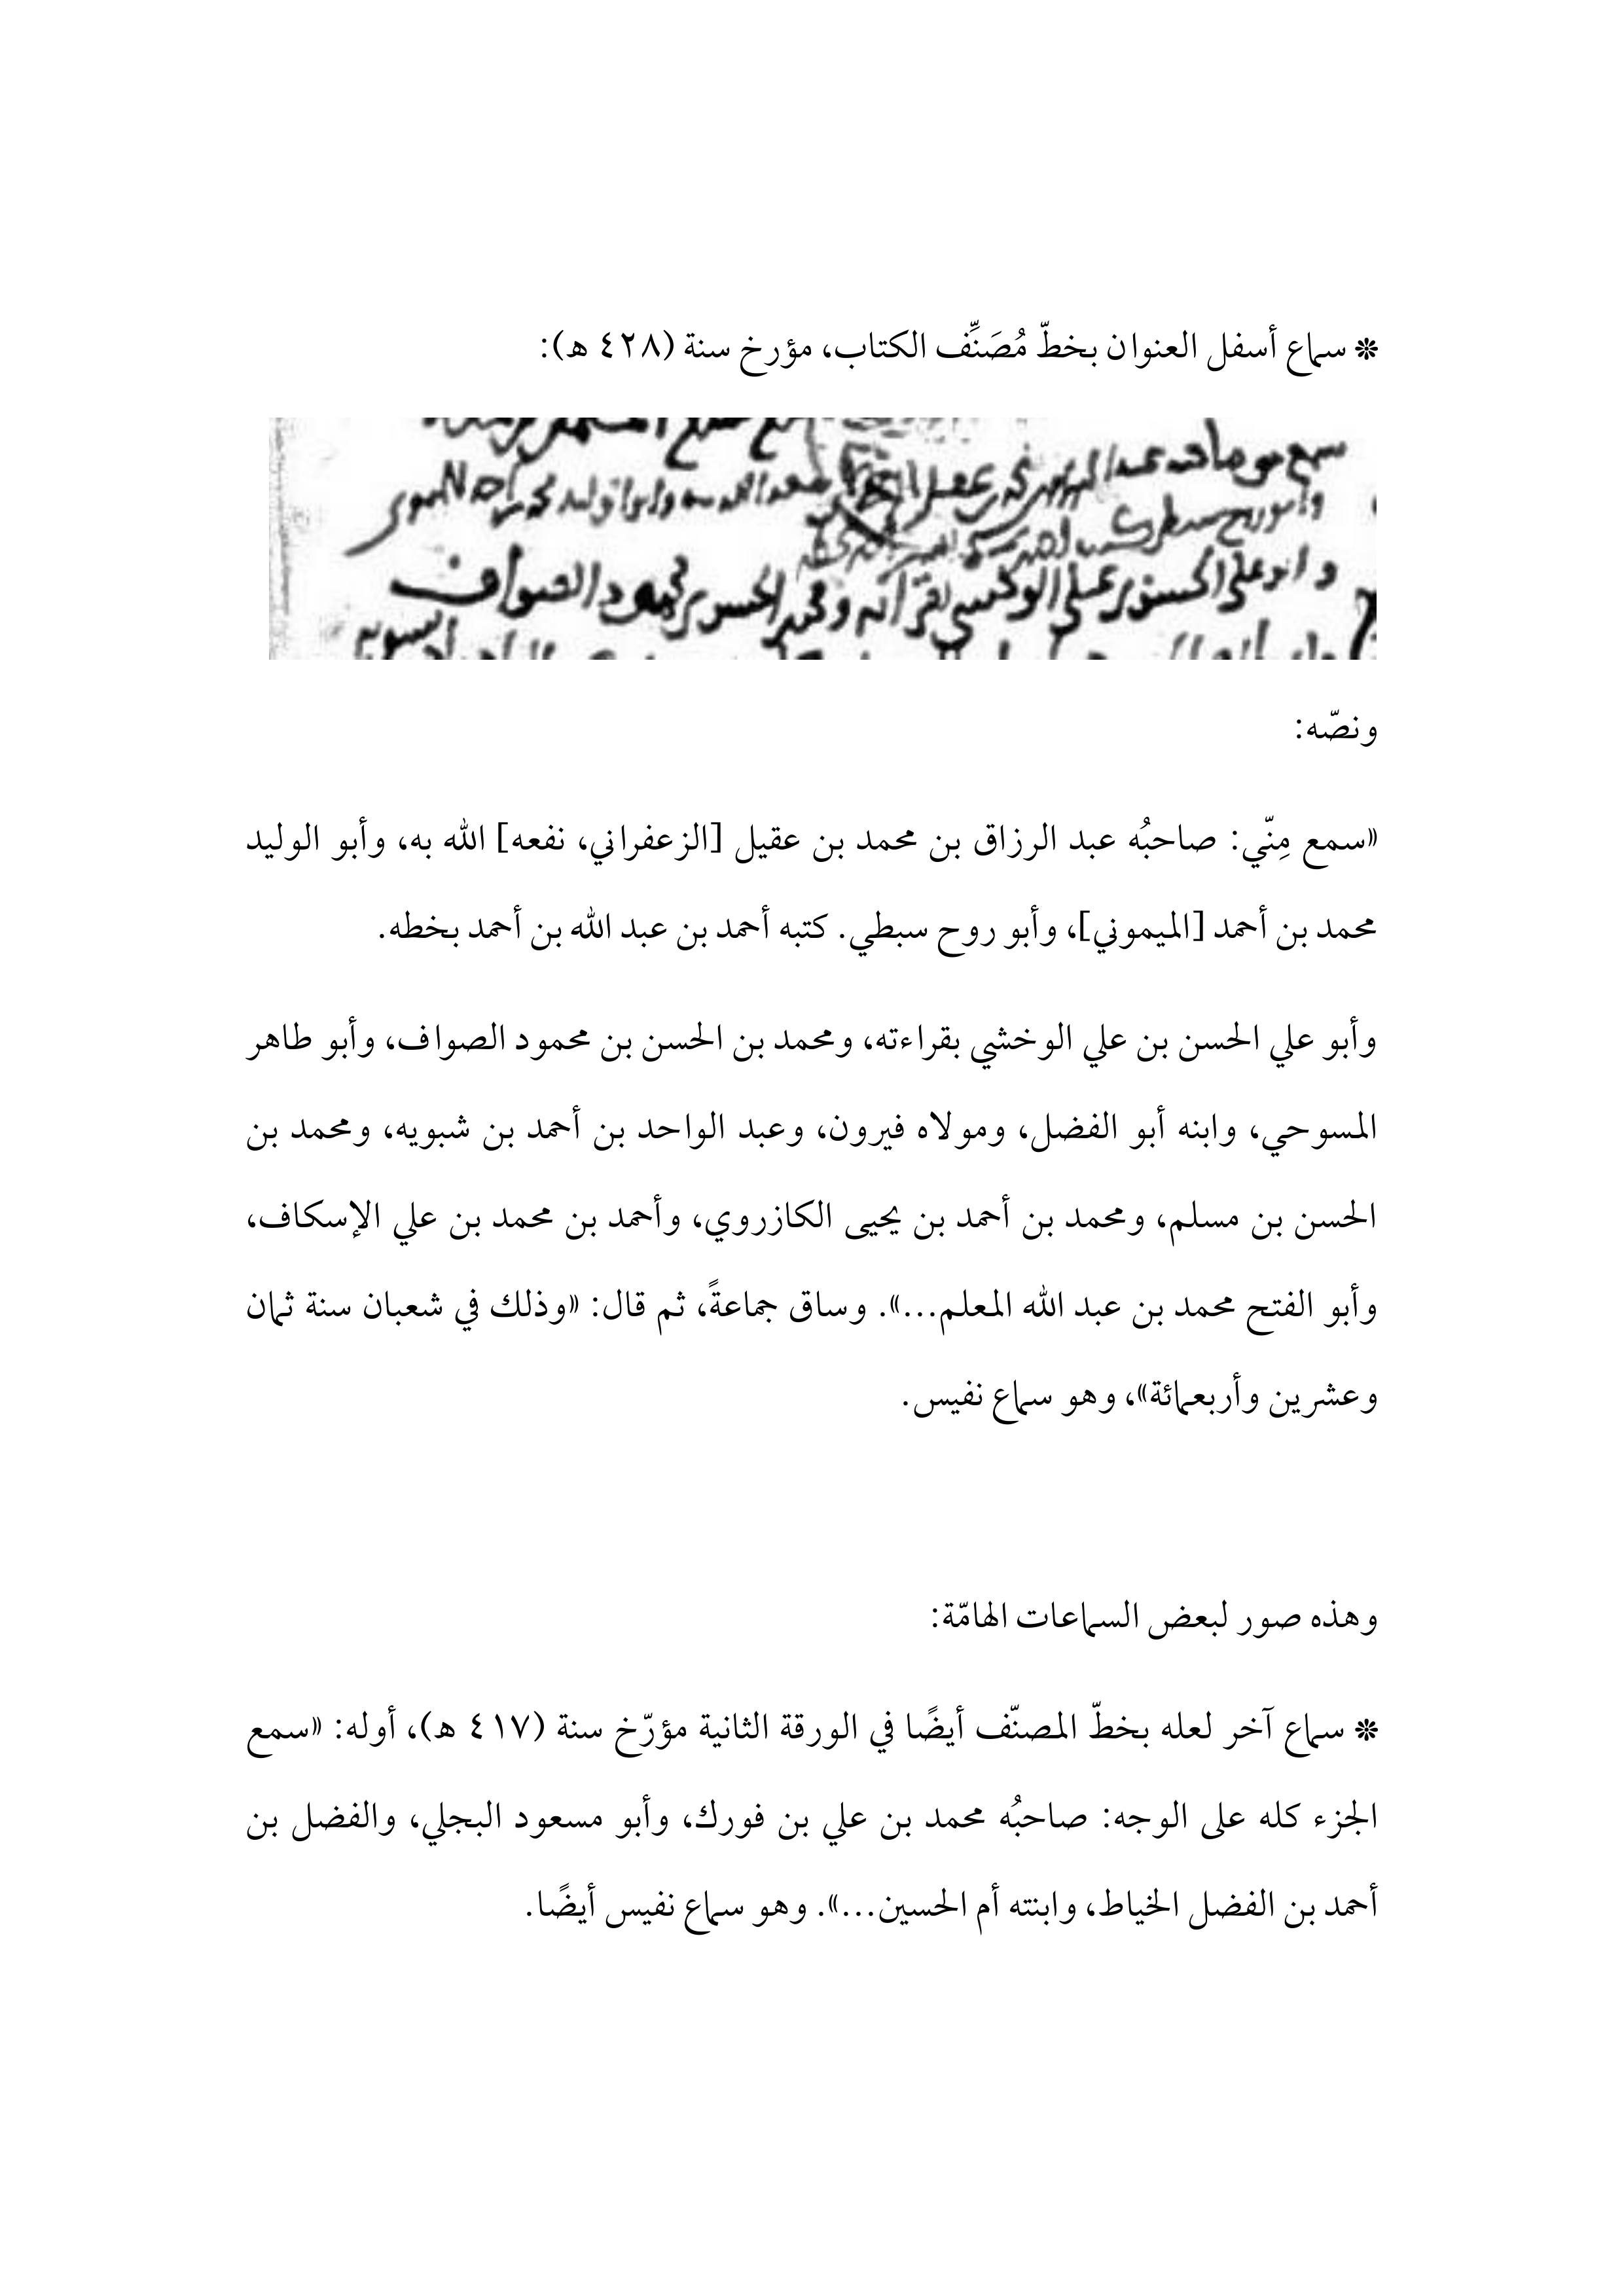 ❊ سماع أسفل العنوان بخطّ مُصَنِّف الكتاب، مؤرخ سنة (٤٢٨ هـ):
سمع مني صاحبه عبد الرزاق بن محمد بن عقيل الله به وأبو الوليد محمد بن أحمد
وأبو روح سبطي كتبه أحمد بن
وأبو علي الحسن بن علي الوخشي بقراءته ومحمد بن الحسن بن محمود الصواف
ونصّه:
«سمع مِنّي: صاحبُه عبد الرزاق بن محمد بن عقيل [الزعفراني، نفعه] الله به، وأبو الوليد
محمد بن أحمد [الميموني]، وأبو روح سبطي. كتبه أحمد بن عبد الله بن أحمد بخطه.
وأبو علي الحسن بن علي الوخشي بقراءته، ومحمد بن الحسن بن محمود الصواف، وأبو طاهر
المسوحي، وابنه أبو الفضل، ومولاه فيرون، وعبد الواحد بن أحمد بن شبويه، ومحمد بن
الحسن بن مسلم، ومحمد بن أحمد بن يحيى الكازروي، وأحمد بن محمد بن علي الإسكاف،
وأبو الفتح محمد بن عبد الله المعلم...». وساق جماعةً، ثم قال: «وذلك في شعبان سنة ثمان
وعشرين وأربعمائة»، وهو سماع نفيس.
وهذه صور لبعض السماعات الهامّة:
❊ سماع آخر لعله بخطّ المصنّف أيضًا في الورقة الثانية مؤرّخ سنة (٤١٧ هـ)، أوله: «سمع
الجزء كله على الوجه: صاحبُه محمد بن علي بن فورك، وأبو مسعود البجلي، والفضل بن
أحمد بن الفضل الخياط، وابنته أم الحسين...». وهو سماع نفيس أيضًا.